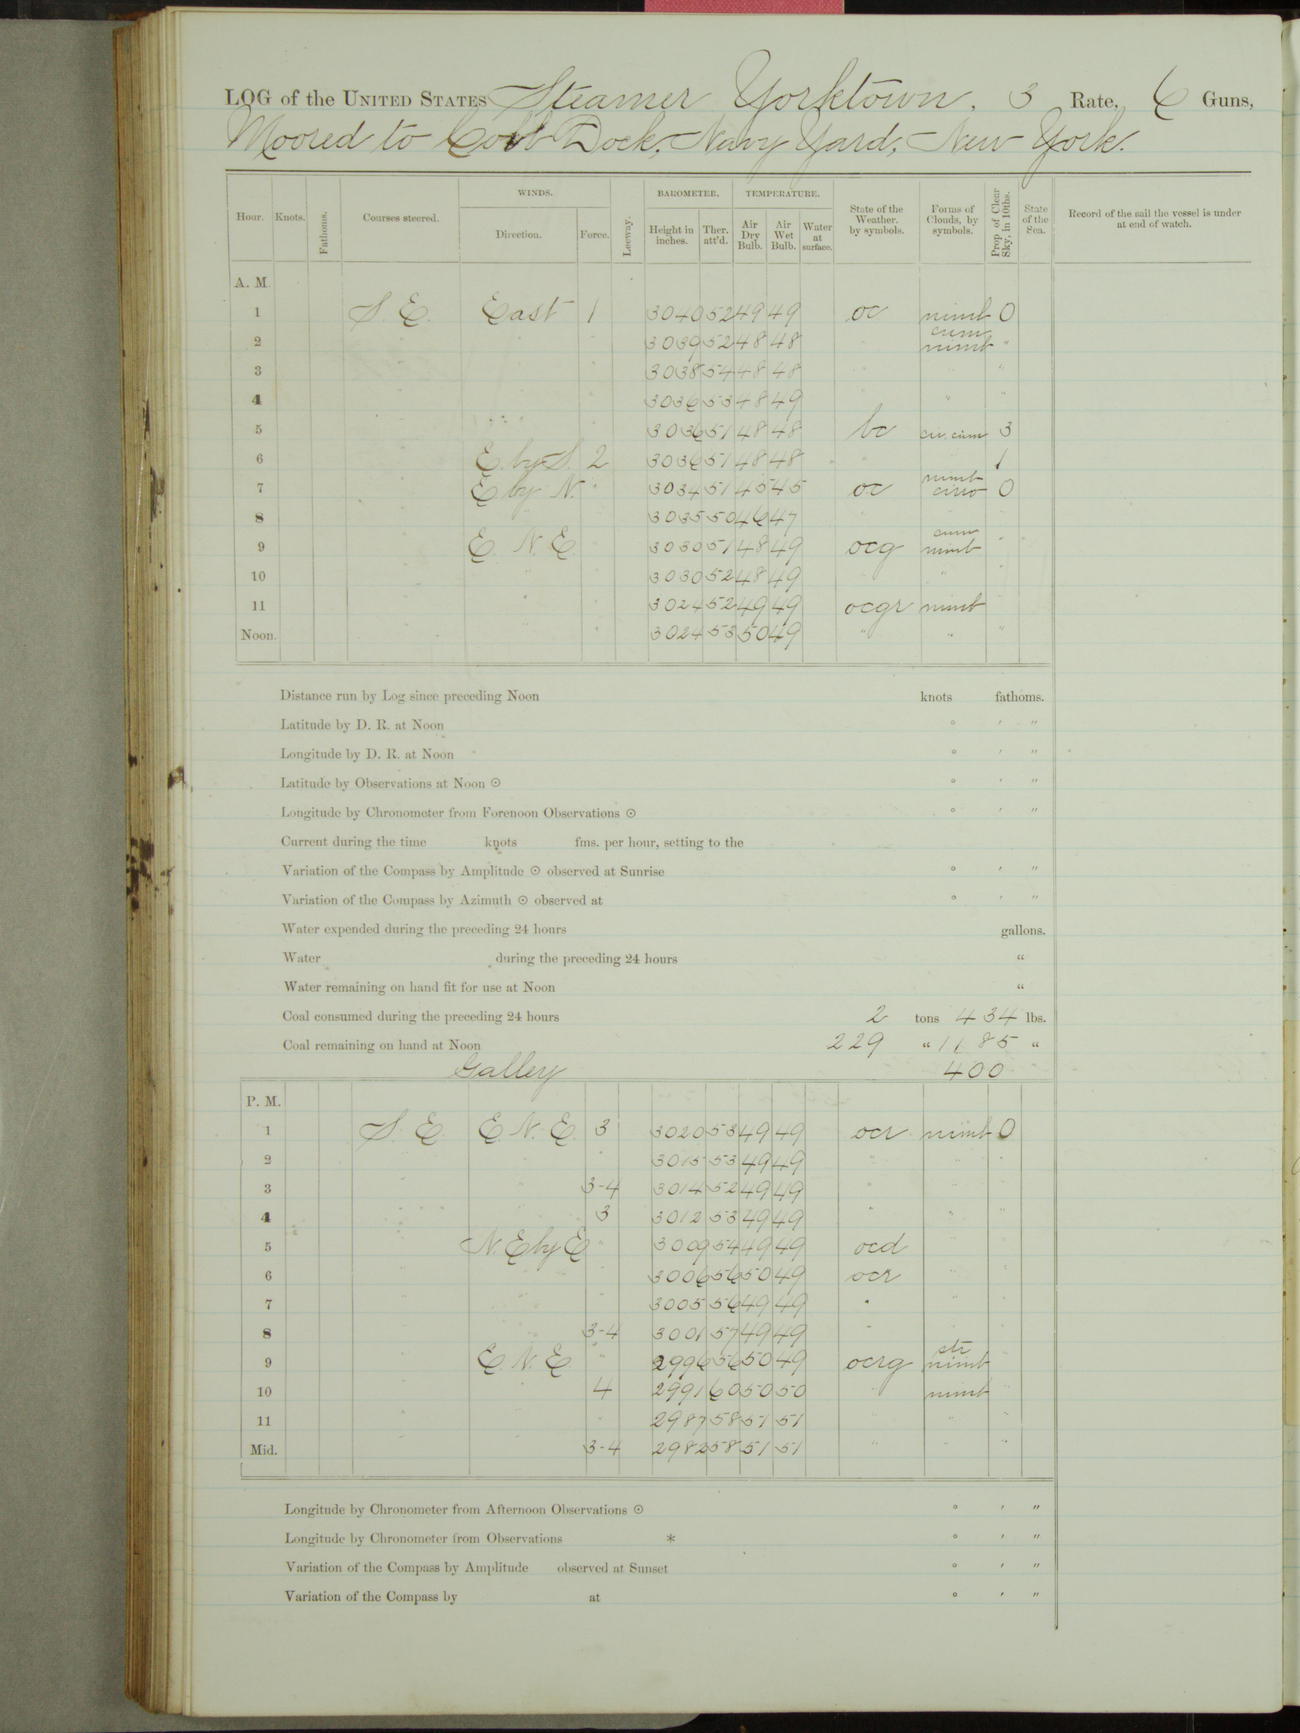 LOG of the UNITED STATES Steamer Yorktown, 3 Rate, 6 Guns,
Moored to Cobb Dock, Navy Yard, New York.
WINDS. BAROMETER. TEMPERATURE.
Hour. Knots. Fathoms. Courses steered. Direction. Force. Leeway. Height in inches. Ther. att'd. Air Dry Bulb. Air Wet Bulb. Water at surface. State of the Weather, by symbols. Forms of Clouds, by symbols. Prop. of Clear Sky, in 10ths. State of the Sea. Record of the sail the vessel is under at end of watch.
A. M.
1 S. E. East 1 3040 52 49 49 oc nimb 0
2 " " " 3039 52 48 48 " cum nimb "
3 " " " 3038 54 48 48 " " "
4 " " " 3036 53 48 49 " " "
5 " " " 3036 51 48 48 bc cir. cum 3
6 " E. by S. 2 3036 51 48 48 " " 1
7 " E by N. " 3034 51 45 45 oc nimb cirro 0
8 " " " 3035 50 46 47 " " "
9 " E. N. E. " 3030 51 48 49 ocg cum nimb "
10 " " " 3030 52 48 49 " " "
11 " " " 3024 52 49 49 ocgr nimb "
Noon. " " " 3024 53 50 49 " " "
Distance run by Log since preceding Noon knots fathoms.
Latitude by D. R. at Noon ° ′ ″
Longitude by D. R. at Noon ° ′ ″
Latitude by Observations at Noon ☉ ° ′ ″
Longitude by Chronometer from Forenoon Observations ☉ ° ′ ″
Current during the time knots fms. per hour, setting to the
Variation of the Compass by Amplitude ☉ observed at Sunrise ° ′ ″
Variation of the Compass by Azimuth ☉ observed at ° ′ ″
Water expended during the preceding 24 hours gallons.
Water during the preceding 24 hours “
Water remaining on hand fit for use at Noon “
Coal consumed during the preceding 24 hours 2 tons 434 lbs.
Coal remaining on hand at Noon 229 “ 1185 “
Galley 400
P. M.
1 S. E. E. N. E. 3 3020 53 49 49 ocr nimb 0
2 " " " 3015 53 49 49 " " "
3 " " 3-4 3014 52 49 49 " " "
4 " " 3 3012 53 49 49 " " "
5 " N. E by E " 3009 54 49 49 ocd " "
6 " " " 3006 56 50 49 ocr " "
7 " " " 3005 56 49 49 " " "
8 " " 3-4 3001 57 49 49 " " "
9 " E. N. E. " 2996 56 50 49 ocrg str nimb "
10 " " 4 2991 60 50 50 " nimb "
11 " " " 2987 58 51 51 " " "
Mid. " " 3-4 2982 58 51 51 " " "
Longitude by Chronometer from Afternoon Observations ☉ ° ′ ″
Longitude by Chronometer from Observations * ° ′ ″
Variation of the Compass by Amplitude observed at Sunset ° ′ ″
Variation of the Compass by at ° ′ ″